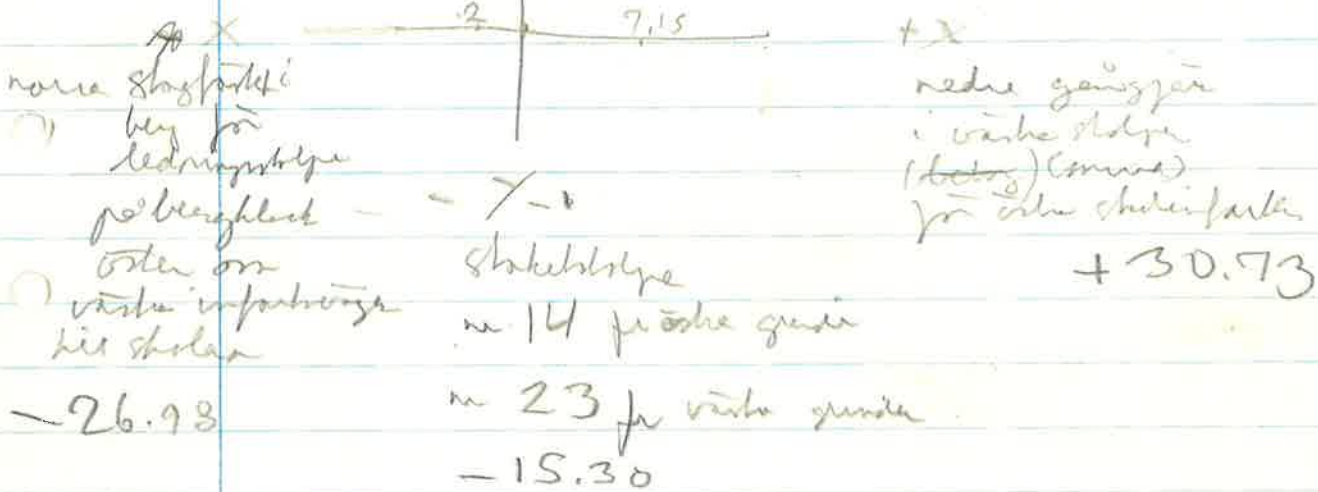 X 2 7,15 + X
norra stagfäste i
berg för
ledningsstolpe
på bergklack
öster om
västra infartsvägen
till skolan
-26.98
- Y -
staketstolpe
nr 14 fr östra grinden
nr 23 fr västra grinden
-15.30
nedre gångjärn
i västra stolpe
(betong) (murad)
för östra
+30.73